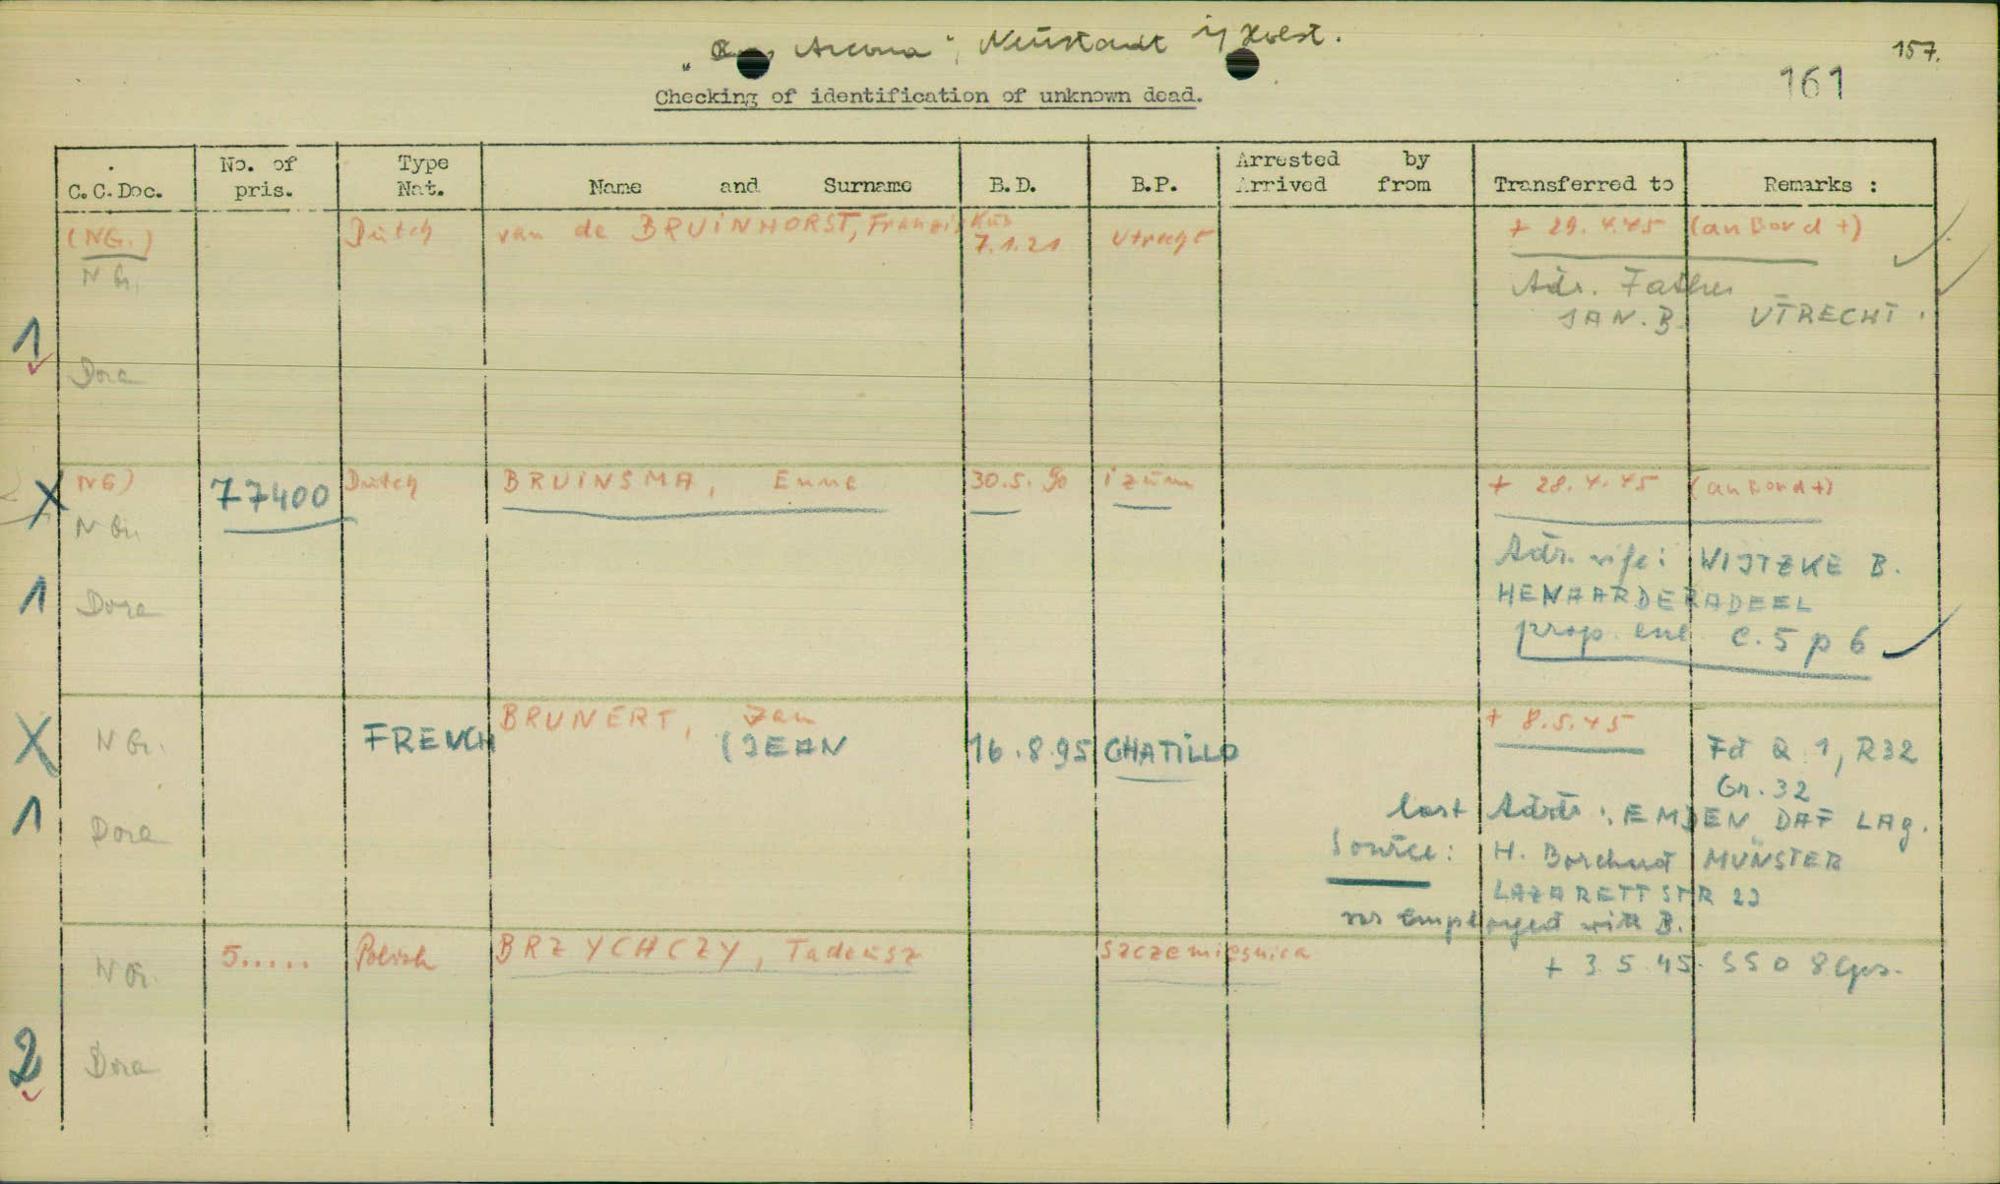 " Arcona", Neustadt i/ Holst.
157.
161
Checking of identification of unknown dead.
C.C.Doc. No. of pris. Type Nat. Name and Surname B.D. B.P. Arrested by Arrived from Transferred to Remarks :
(NG.) Dutch van de BRUINHORST, Franziskus 7.1.21 Utrecht + 29.4.45 (an Bord +)
N Gr. Adr. Father
JAN. B. UTRECHT.
1
Dora
X NG) 77400 Dutch BRUINSMA, Enne 30.5.90 izum + 28.4.45 (an Bord +)
N Gr.
Adr. wife: WIJTZKE B.
1 Dora HENAARDERADEEL
prop. env. C. 5 p 6
BRUNERT, Jan + 8.5.45
X N Gr. FRENCH (JEAN 16.8.95 CHATILLO Fd Q 1, R32
Gr. 32
1 Dora last Adr : EMDEN DAF LAg.
Source: H. Borchert MÜNSTER
LAZARETTSTR 23
was employed with B.
N Gr. 5..... Polish BRZYCHCZY, Tadeusz Szczemiesnica + 3 5 45. SSO 8 Gps.
2 Dora